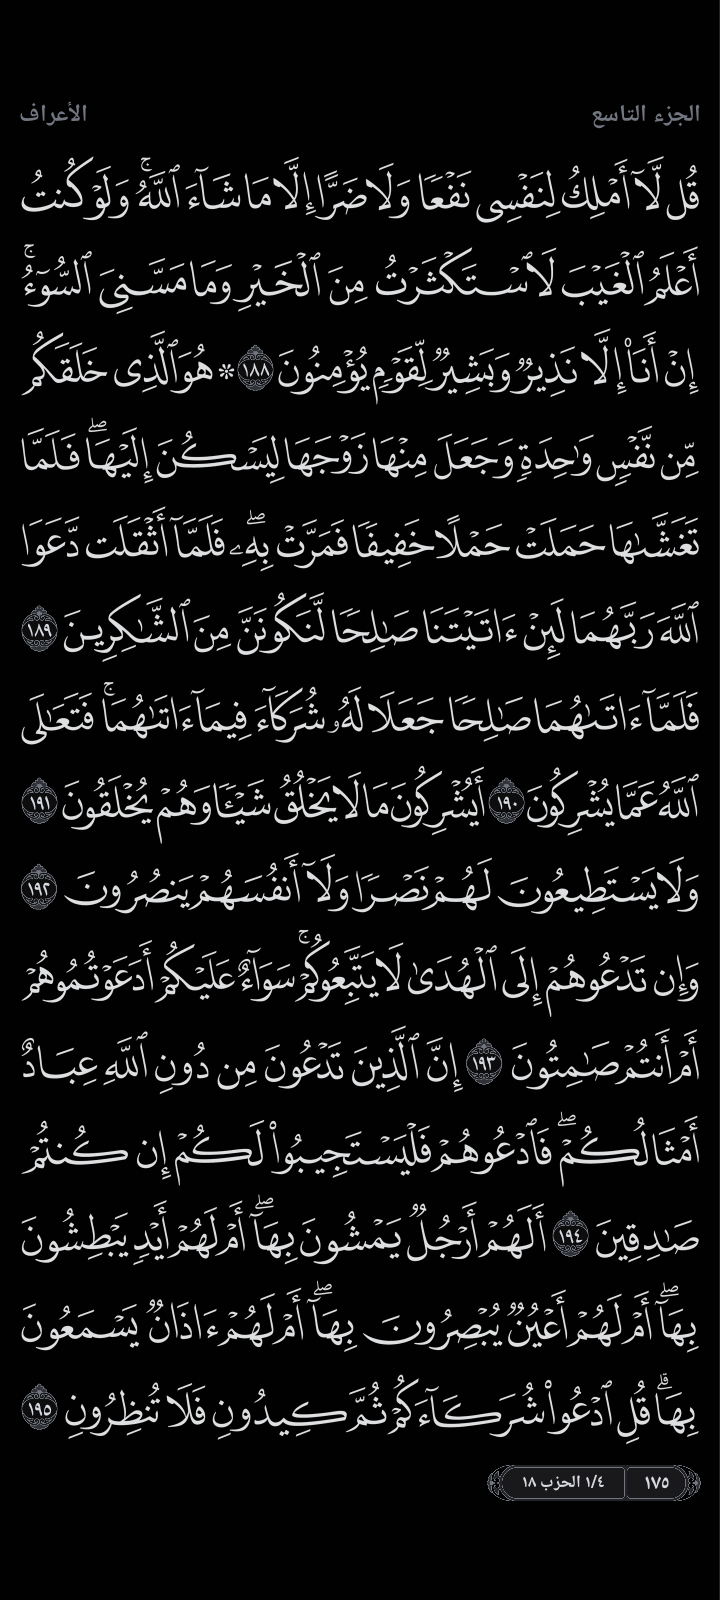 الجزء التاسع
الأعراف
قُل لَّآ أَمْلِكُ لِنَفْسِى نَفْعًا وَلَا ضَرًّا إِلَّا مَا شَآءَ ٱللَّهُ ۚ وَلَوْ كُنتُ
أَعْلَمُ ٱلْغَيْبَ لَٱسْتَكْثَرْتُ مِنَ ٱلْخَيْرِ وَمَا مَسَّنِىَ ٱلسُّوٓءُ ۚ
إِنْ أَنَا۠ إِلَّا نَذِيرٌ وَبَشِيرٌ لِّقَوْمٍ يُؤْمِنُونَ ١٨٨ * هُوَ ٱلَّذِى خَلَقَكُم
مِّن نَّفْسٍ وَٰحِدَةٍ وَجَعَلَ مِنْهَا زَوْجَهَا لِيَسْكُنَ إِلَيْهَا ۖ فَلَمَّا
تَغَشَّىٰهَا حَمَلَتْ حَمْلًا خَفِيفًا فَمَرَّتْ بِهِۦ ۖ فَلَمَّآ أَثْقَلَت دَّعَوَا
ٱللَّهَ رَبَّهُمَا لَئِنْ ءَاتَيْتَنَا صَٰلِحًا لَّنَكُونَنَّ مِنَ ٱلشَّٰكِرِينَ ١٨٩
فَلَمَّآ ءَاتَىٰهُمَا صَٰلِحًا جَعَلَا لَهُۥ شُرَكَآءَ فِيمَآ ءَاتَىٰهُمَا ۚ فَتَعَٰلَى
ٱللَّهُ عَمَّا يُشْرِكُونَ ١٩٠ أَيُشْرِكُونَ مَا لَا يَخْلُقُ شَيْـًٔا وَهُمْ يُخْلَقُونَ ١٩١
وَلَا يَسْتَطِيعُونَ لَهُمْ نَصْرًا وَلَآ أَنفُسَهُمْ يَنصُرُونَ ١٩٢
وَإِن تَدْعُوهُمْ إِلَى ٱلْهُدَىٰ لَا يَتَّبِعُوكُمْ ۚ سَوَآءٌ عَلَيْكُمْ أَدَعَوْتُمُوهُمْ
أَمْ أَنتُمْ صَٰمِتُونَ ١٩٣ إِنَّ ٱلَّذِينَ تَدْعُونَ مِن دُونِ ٱللَّهِ عِبَادٌ
أَمْثَالُكُمْ ۖ فَٱدْعُوهُمْ فَلْيَسْتَجِيبُوا۟ لَكُمْ إِن كُنتُمْ
صَٰدِقِينَ ١٩٤ أَلَهُمْ أَرْجُلٌ يَمْشُونَ بِهَآ ۖ أَمْ لَهُمْ أَيْدٍ يَبْطِشُونَ
بِهَآ ۖ أَمْ لَهُمْ أَعْيُنٌ يُبْصِرُونَ بِهَآ ۖ أَمْ لَهُمْ ءَاذَانٌ يَسْمَعُونَ
بِهَا ۗ قُلِ ٱدْعُوا۟ شُرَكَآءَكُمْ ثُمَّ كِيدُونِ فَلَا تُنظِرُونِ ١٩٥
١٧٥
١/٤ الحزب ١٨